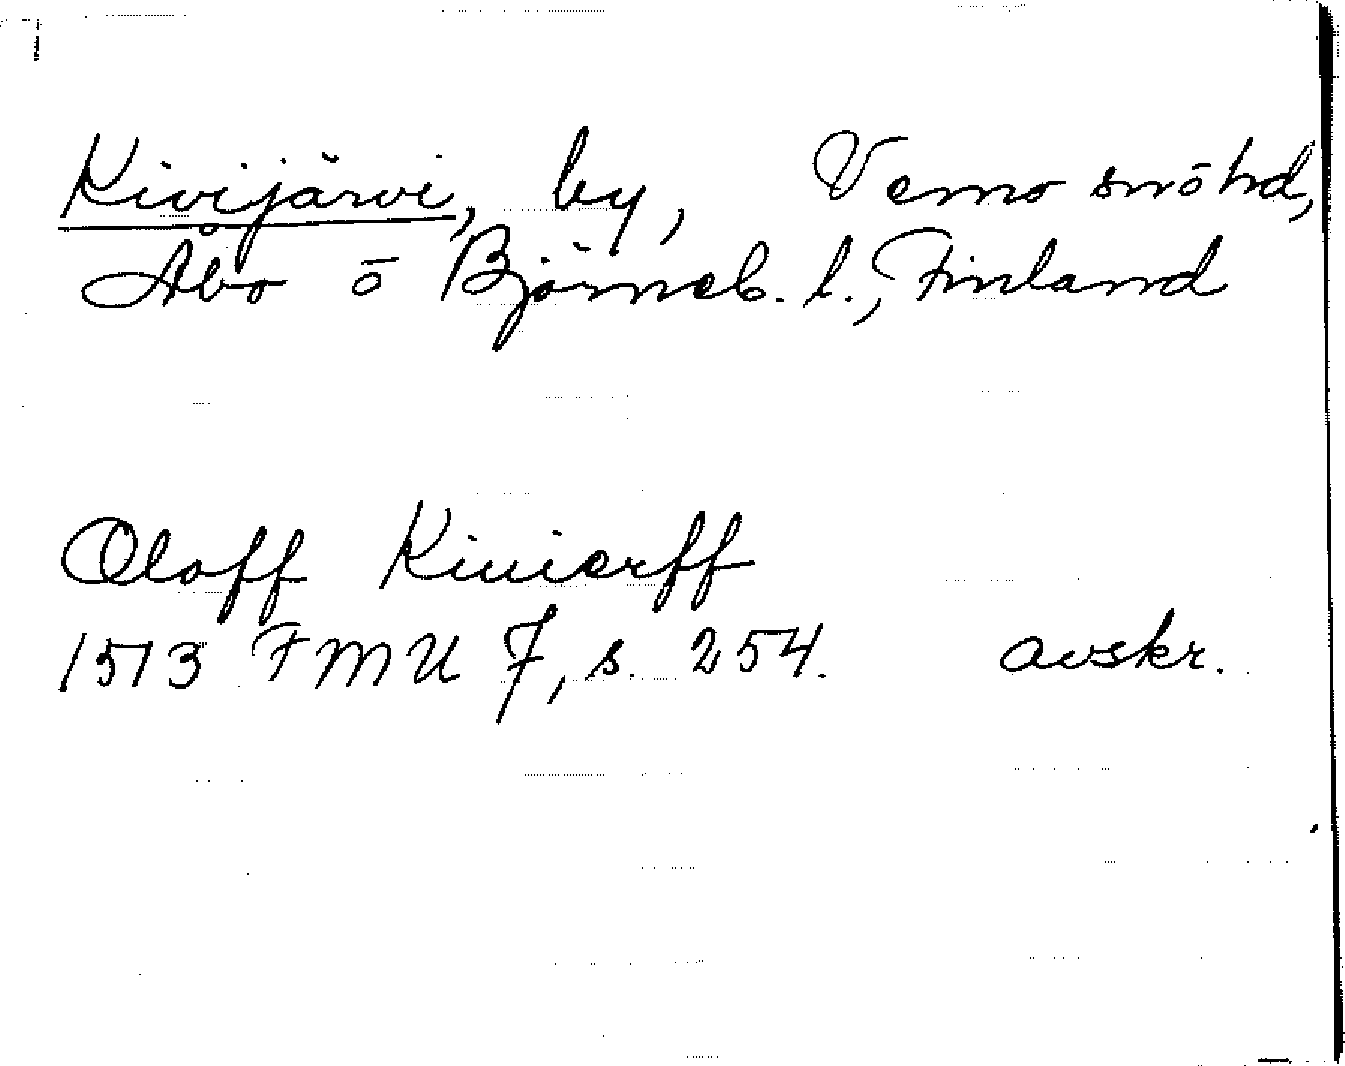 Kivijärvi, by, Vemo snöhd,
Åbo o Björneb. l., Finland
Oloff Kiuierff
1513 FMU 7, s. 254. avskr.